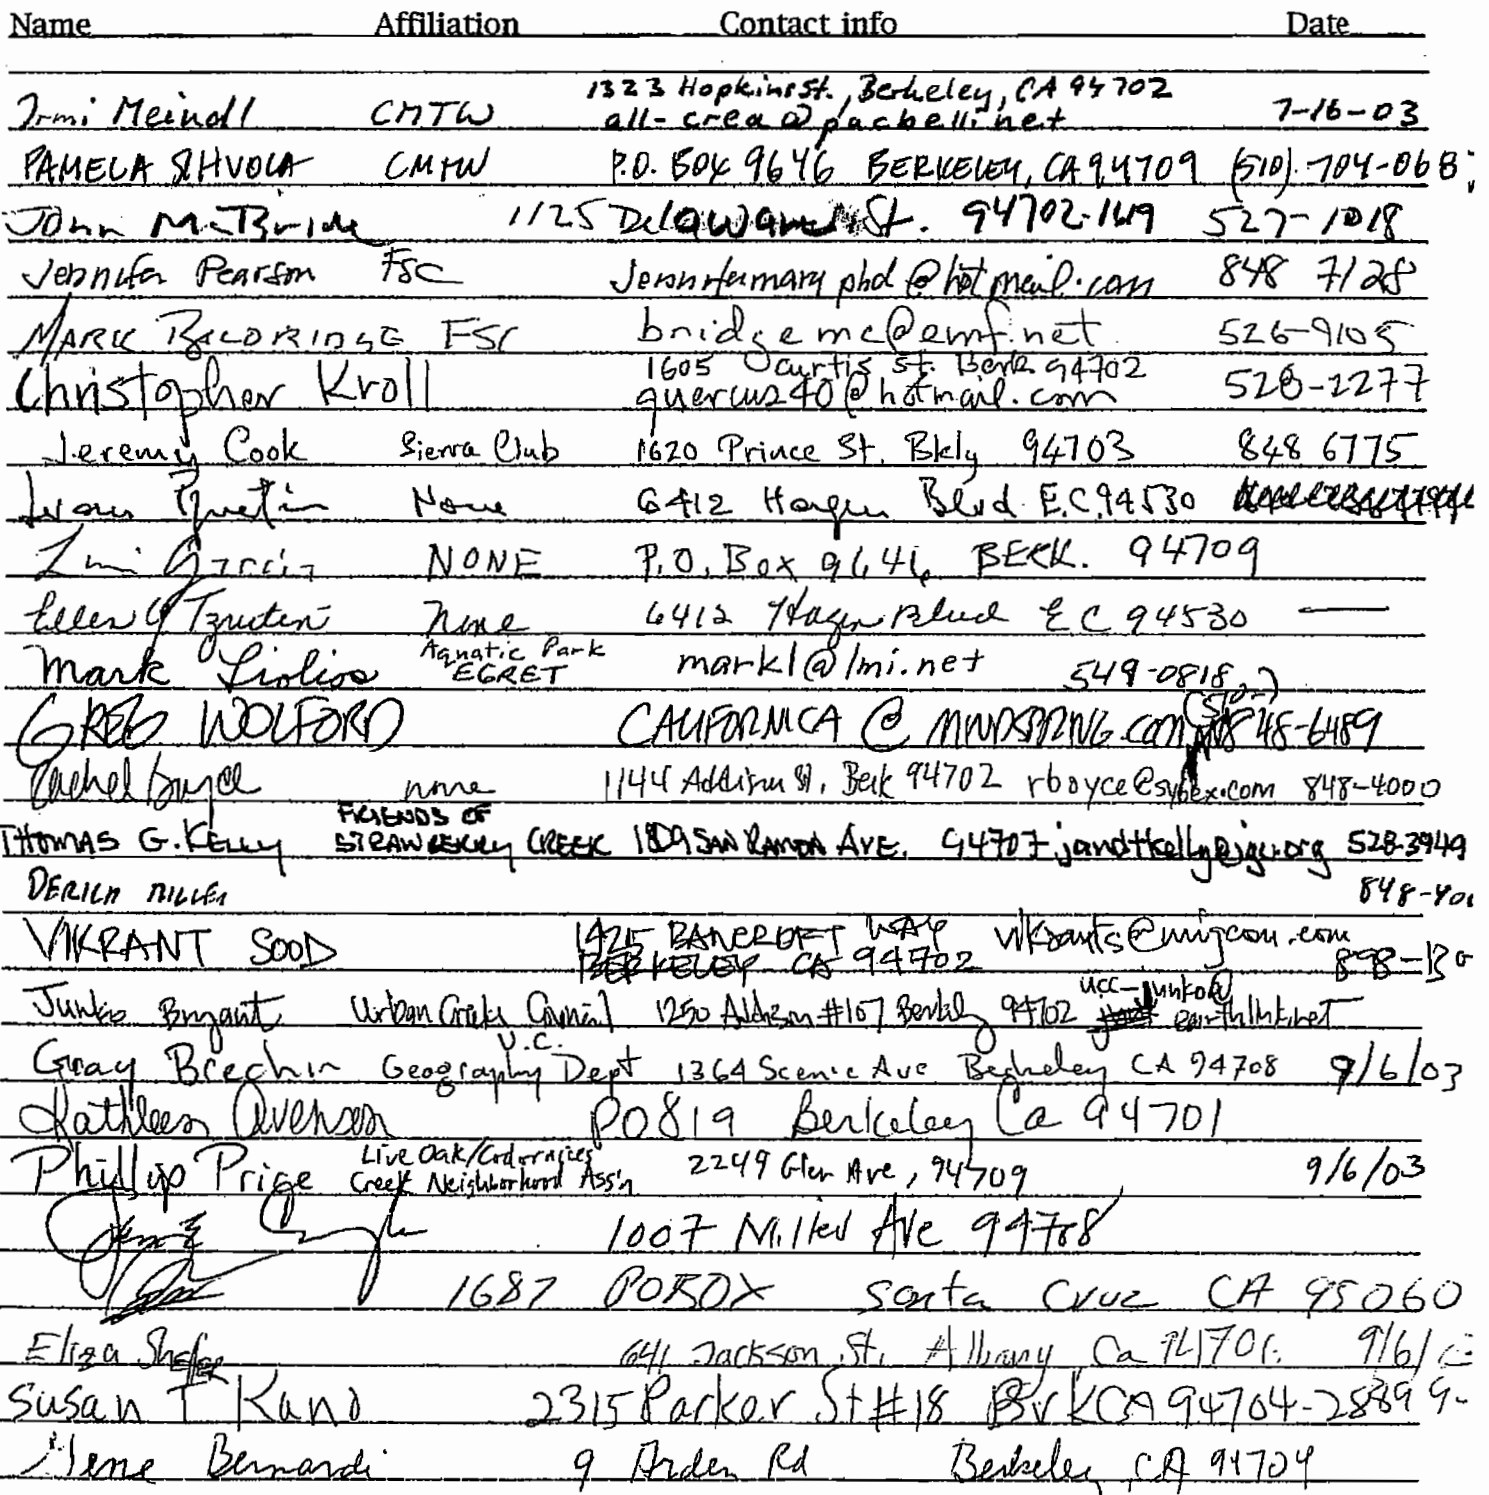 Name Affiliation Contact info Date
1323 Hopkins St., Berkeley, CA 94702
Irmi Meindl CMTW all-crea@pacbell.net 7-16-03
PAMELA SIHVOLA CMTW P.O. BOX 9646 BERKELEY, CA 94709 (510) 704-068
John McBride 1125 Delaware St. 94702-1619 527-1018
Jennifer Pearson FSC jennifermaryphd@hotmail.com 848 7128
MARK BALDRIDGE FSC bridgemc@emf.net 526-9105
1605 Curtis St. Berk 94702
Christopher Kroll quercus240@hotmail.com 528-2277
Jeremy Cook Sierra Club 1620 Prince St. Bkly 94703 848 6775
None 6412 Hagen Blvd E.C. 94530
Garcia NONE P.O. Box 9646 BERK. 94709
Ellen None 6412 Hagen Blvd E C 94530 —
Aquatic Park
Mark Liolios EGRET markl@lmi.net 549-0818
(510-)
GREG WOLFORD CALIFORNICA @ MINDSPRING.com 848-6489
Rachel Boyce none 1144 Addison St. Berk 94702 rboyce@sybex.com 848-4000
FRIENDS OF
THOMAS G. KELLY STRAWBERRY CREEK 1809 SAN RAMON AVE. 94707 jandtkelly@igc.org 528-3949
DERICK MILLER 848-40
VIKRANT SOOD 1425 BANCROFT WAY vikrants@migcom.com
BERKELEY CA 94702 898-130
ucc-junko@
Junko Bryant Urban Creeks Council 1250 Addison #107 Berkeley 94702 earthlink.net
U.C.
Gray Brechin Geography Dept 1364 Scenic Ave Berkeley CA 94708 9/6/03
Kathleen Avenson PO 819 Berkeley Ca 94701
Live Oak/Codornices
Phillip Price Creek Neighborhood Ass'n 2249 Glen Ave, 94709 9/6/03
1007 Miller Ave 94708
1687 PO BOX Santa Cruz CA 95060
Eliza Shefler 641 Jackson St, Albany Ca 9/6/
Susan T Kano 2315 Parker St #18 Brk CA 94704-2889 9-
Gene Bernardi 9 Arden Rd Berkeley, CA 94704